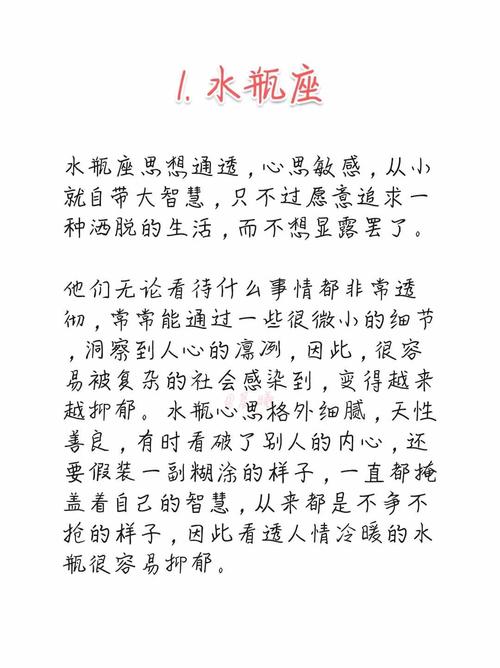 1. 水瓶座
水瓶座思想通透，心思敏感，从小
就自带大智慧，只不过愿意追求一
种洒脱的生活，而不想显露罢了。
他们无论看待什么事情都非常透
彻，常常能通过一些很微小的细节
，洞察到人心的凛冽，因此，很容
易被复杂的社会感染到，变得越来
越抑郁。水瓶心思格外细腻，天性
善良，有时看破了别人的内心，还
要假装一副糊涂的样子，一直都掩
盖着自己的智慧，从来都是不争不
抢的样子，因此看透人情冷暖的水
瓶很容易抑郁。